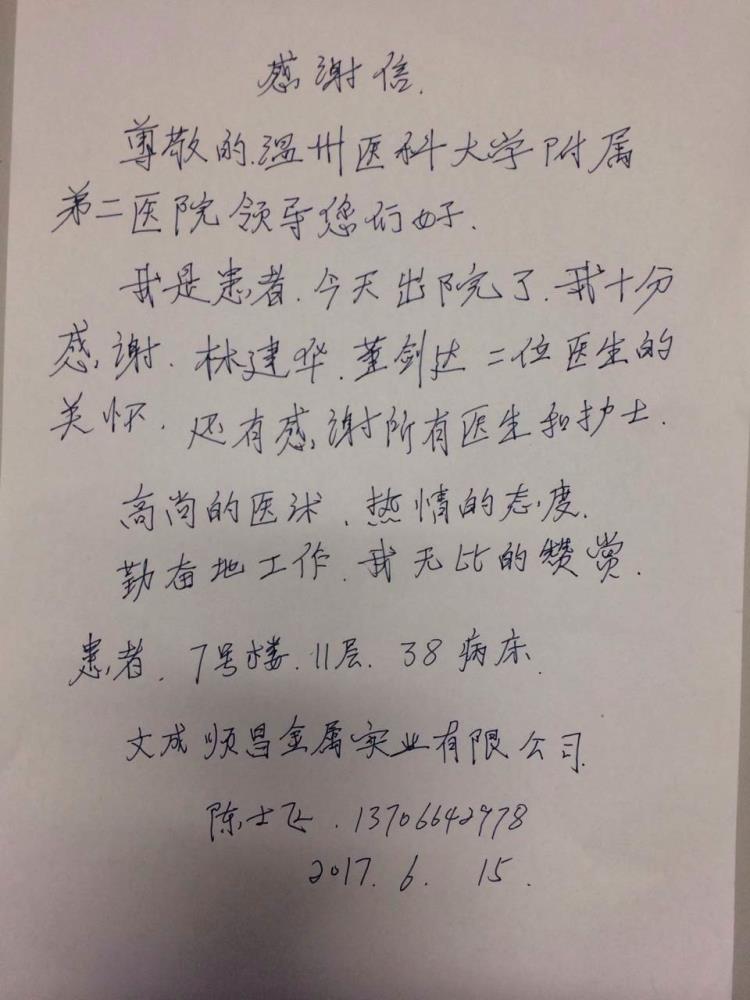 感谢信.
尊敬的.温州医科大学附属
第二医院领导您们好.
我是患者.今天出院了.我十分
感谢.林建华.董剑达二位医生的
关怀.还有感谢所有医生和护士.
高尚的医术、热情的态度.
勤奋地工作.我无比的赞赏.
患者.7号楼.11层.38病床.
文成顺昌金属实业有限公司
陈士飞.13706642978
2017.6.15.